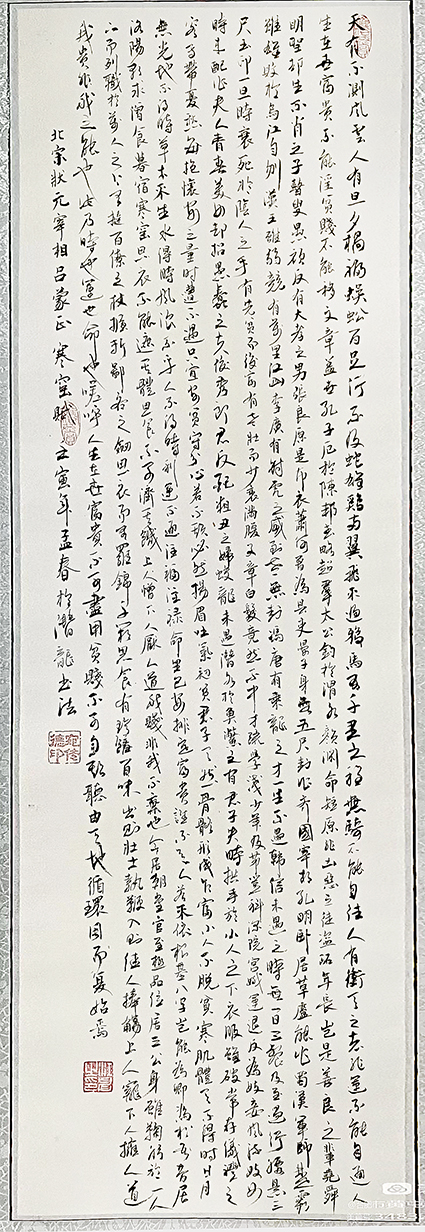 天有不測風雲人有旦夕禍福蜈蚣百足行不及蛇雄鷄兩翼飛不過鴉馬有千里之程無騎不能自往人有衝天之志非運不能自通人
生在世富貴不能淫貧賤不能移文章蓋世孔子厄於陳邦武略超羣太公釣於渭水顏淵命短原非凶惡之徒盜跖年長豈是善良之輩堯舜
明聖却生不肖之子瞽叟愚頑反有大孝之男張良原是布衣蕭何為縣吏晏子身無五尺封作齊國宰相孔明卧居草廬能作蜀漢軍師楚霸
雖雄敗於烏江自刎漢王雖弱競有萬里江山李廣有射虎之威到老無封馮唐有乘龍之才一生不遇韓信未遇之時無一日三餐及至遇行腰懸三
尺玉印一旦時衰死於陰人之手有先貧而後富有老壯而少衰滿腹文章白髮竟然不中才疏學淺少年及第登科深院宮娥運退反為妓妾風流妓女
時來配作夫人青春美女却招愚蠢之夫俊秀郎君反配粗丑之婦蛟龍未遇潛水於魚鱉之間君子失時拱手於小人之下衣服雖破常存儀禮之
容面帶憂愁每抱懷安之量時遭不遇只宜安貧守分心若不欺必然揚眉吐氣初貧君子天然骨骼形成乍富小人不脫貧寒肌體天不得時日月
無光地不得時草木不生水得時風浪不平人不得時利運不通注福注祿命里已安排定富貴誰不欲人若不依根基八字豈能為卿為相吾昔居
洛陽朝求僧食暮宿寒窑思衣不能遮其體思食不可濟其饑上人憎下人厭人道我賤非我不棄也今居朝堂官至極品位居三公身雖鞠躬於一人
而列職於萬人之上有撻百僚之杖有斬鄙吝之劍思衣而有羅錦千箱思食有珍饈百味出則壯士執鞭入則佳人捧觴上人寵下人擁人道
我貴非我之能也此乃時也運也命也嗟呼人生在世富貴不可盡用貧賤不可自欺聽由天地循環周而復始焉
北宋狀元宰相呂蒙正寒窑賦壬寅年孟春於潛龍書法